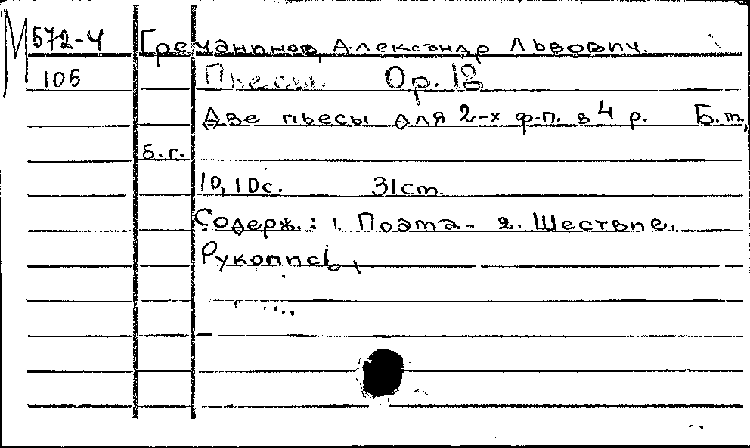 М 572-4 Гречанинов, Александр Львович.
105 Пьесы. Op. 18
Две пьесы для 2-х ф-п. в 4 р. Б.м.,
б.г.
10, 10с. 31cm
Содерж.: 1. Поэма - 2. Шествие.
Рукопись,